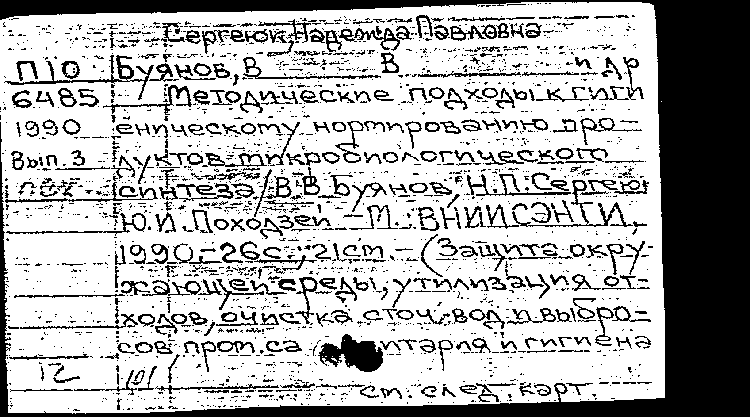 Сергеюк, Надежда Павловна
П10 Буянов, В В и др
6485 Методические подходы к гиги
1990 еническому нормированию про-
Вып. 3 дуктов микробиологического
синтеза / В.В. Буянов, Н.П. Сергею
Ю.И. Походзей - М.: ВНИИСЭНТИ,
1990. - 26с.; 21см. - (Защита окру-
жающей среды, утилизация от-
ходов, очистка сточ. вод и выбро-
сов, пром. са нитария и гигиена
12 101
см. след. карт.